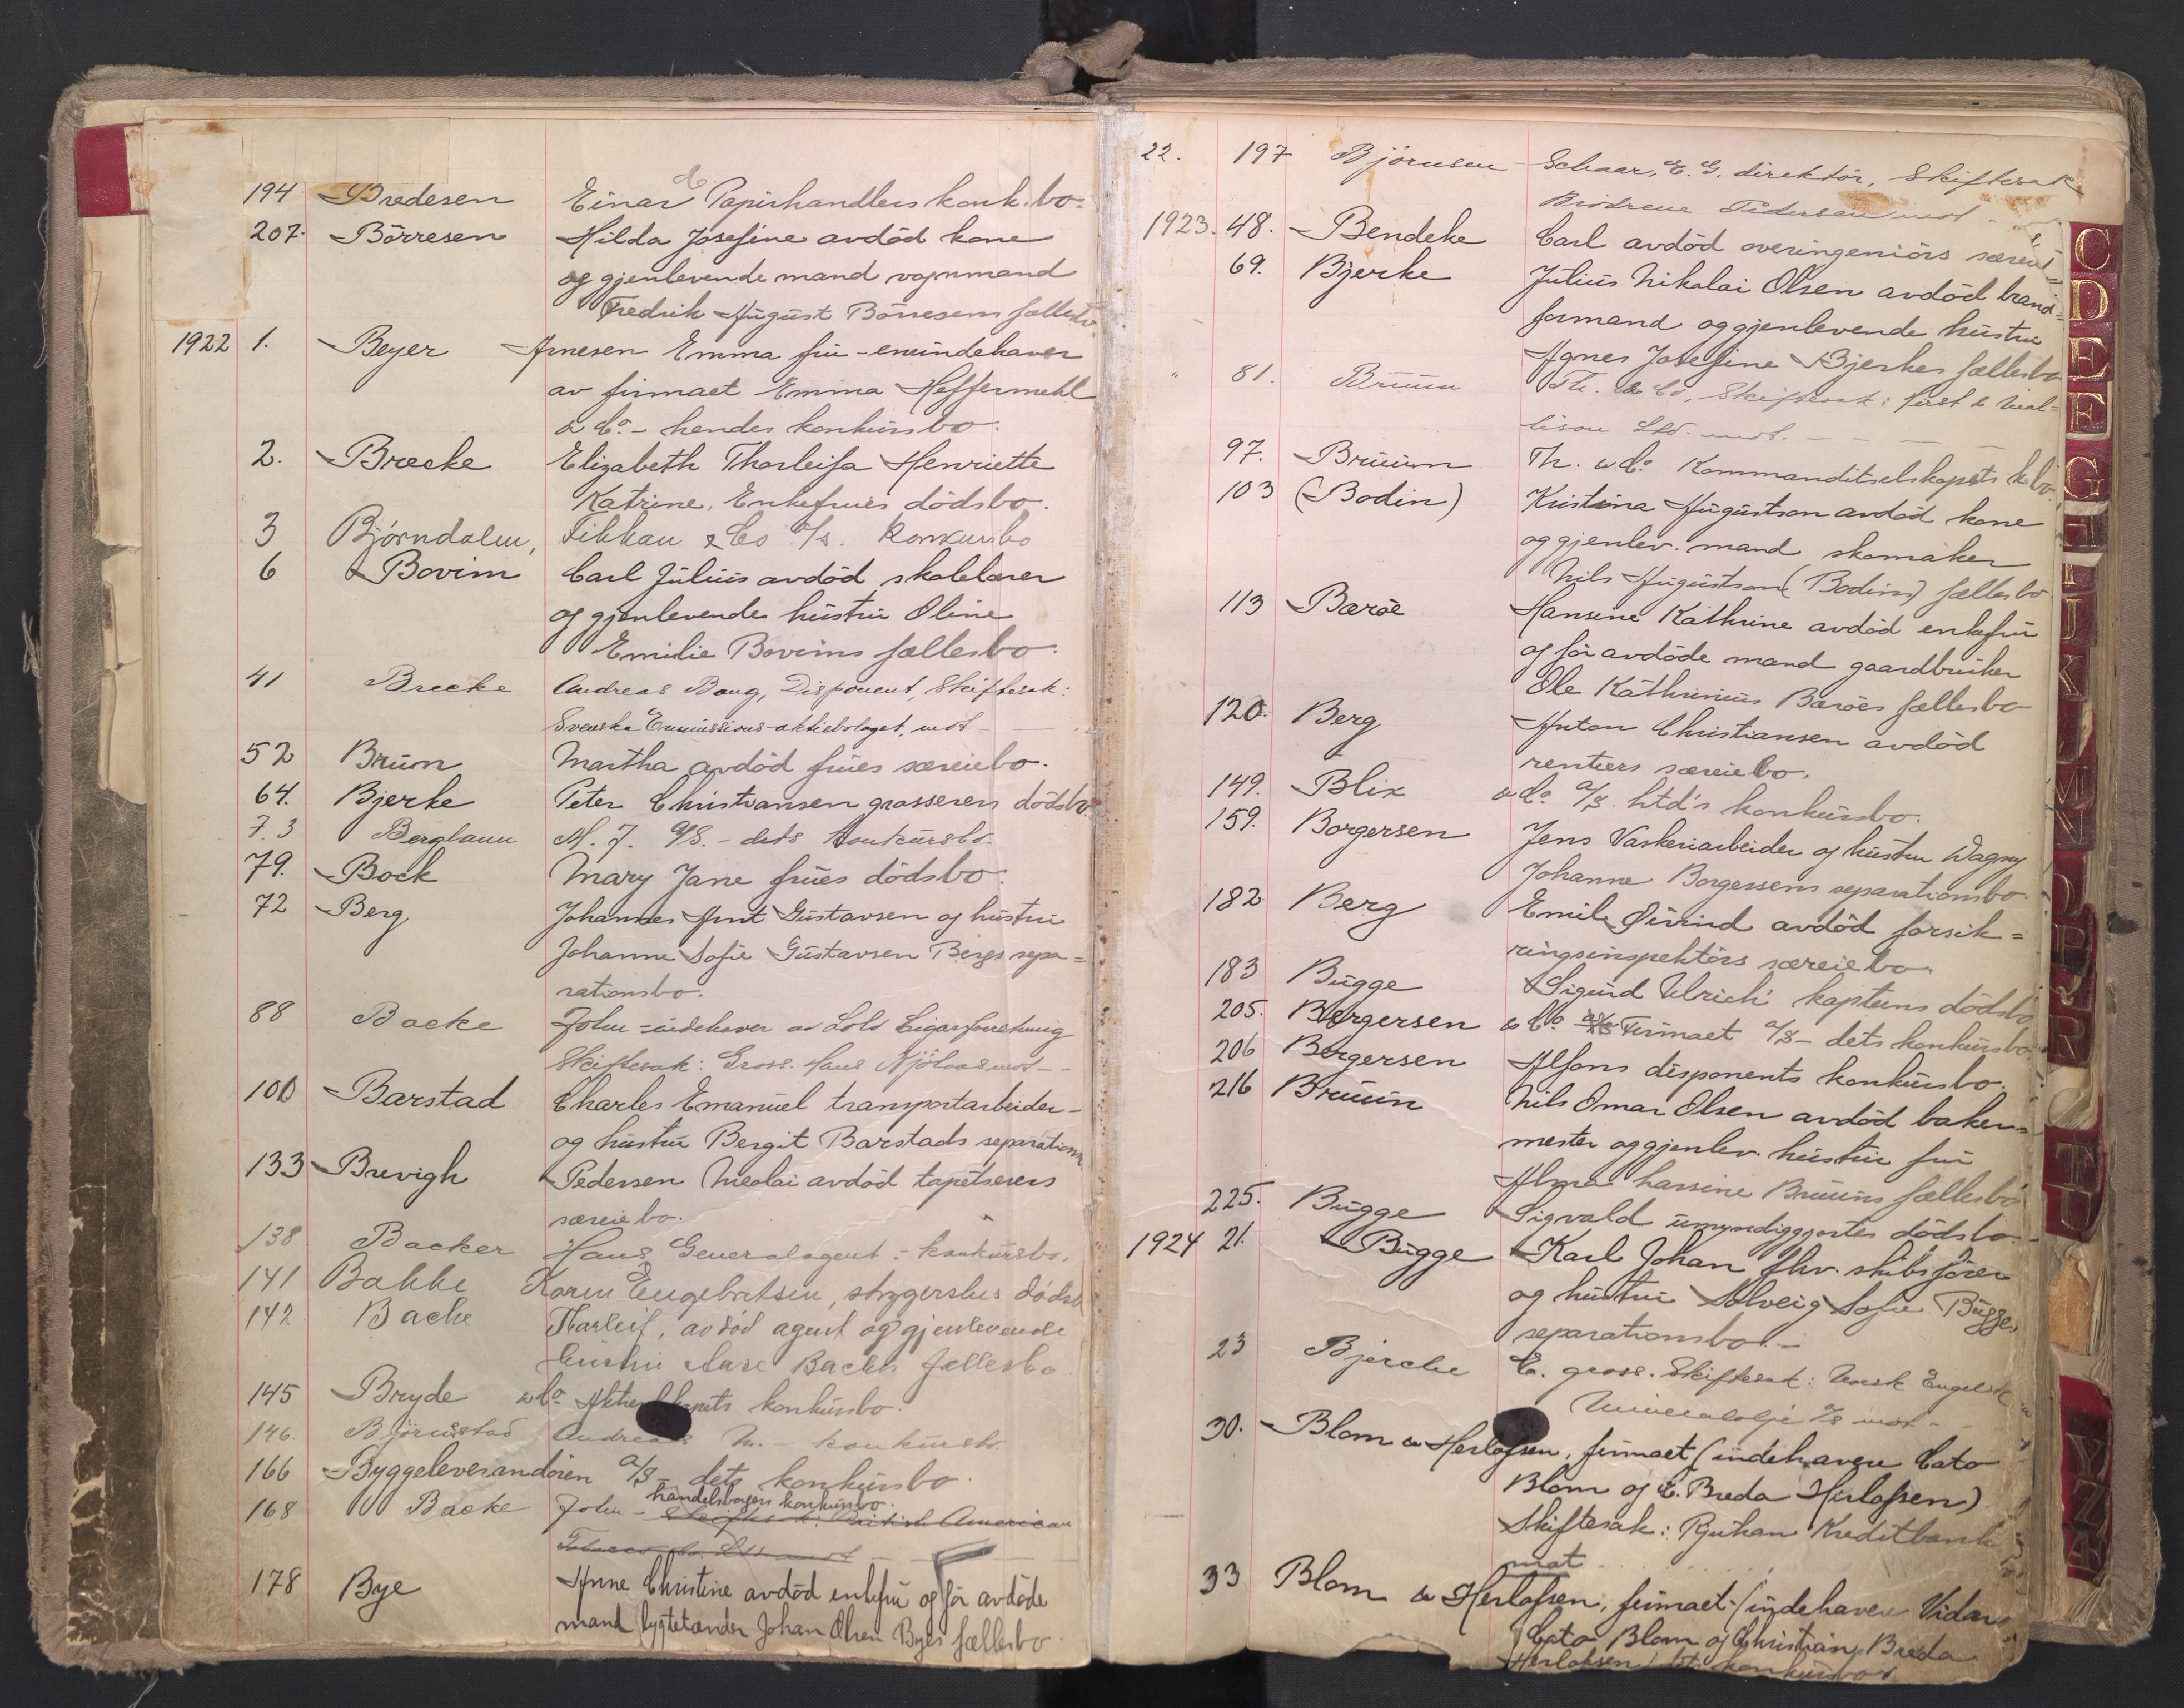 194 Bredesen Einar E. Papirhandlers konk.bo.
207. Börresen Hilda Josefine avdöd kone
og gjenlevende mand vognmand
Fredrik August Börresens fællesbo
1922 1. Beyer Arnesen Emma fru - eneindehaver
av firmaet Emma Heffermehl
& Co. - hendes konkursbo.
2. Brecke Elizabeth Thorleifa Henriette
Katrine, Enkefrues dödsbo.
3 Bjørndalen, Fikkan & Co A/s. Konkursbo
6 Bovim Carl Julius avdöd skolelærer
og gjenlevende hustru Oline
Emilie Bovims fællesbo.
41 Brecke Andreas Baug, Disponent, Skiftesak:
Svenska Emissions-aktiebolaget, mot -
52 Bruun Martha avdöd frues særeiebo.
64. Bjerke Peter Christiansen grosserers dödsbo
73 Berglaun M. J. A/S. - dets konkursbo.
79. Bock Mary Jane frues dödsbo.
72 Berg Johannes Arnt Gustavsen og hustru
Johanne Sofie Gustavsen Bergs sepa=
rationsbo.
88 Backe John - indehaver av Lolo Cigarforretning
Skiftesak: Gross. Hans mot -
100 Barstad Charles Emanuel transportarbeider -
og hustru Bergit Barstads separations
133 Brevigh Pedersen Nicolai avdöd tapetserers
særeiebo.
138 Backer Hans, Generalagent - konkursbo.
141 Bakke Karen Engebretsen, strygerskes dødsb
142 Bache Tharleif, avdød agent og gjenlevende
hustru Aase Baches fællesbo
145 Bryde & Co Aktieselskapets konkursbo.
146. Björnstad Andreas M. - konkursbo
166 Byggeleverandören A/S - dets konkursbo.
168 Backe John - handelsborgers konkursbo. Skiftesak: British American
Tobacco Co. Ltd mot
178 Bye Anne Christine avdöd enkefru og för avdöde
mand lygtetænder Johan Olsen Byes fællesbo
22. 197 Björnsen - Schaar, E. G. direktör, Skiftesak
Brödrene Pedersen mot -
1923. 48. Bendeke Carl avdöd overingeniörs særei
69. Bjerke Julius Nikolai Olsen avdöd brand=
formand og gjenlevende hustru
Agnes Josefine Bjerkes fællesbo
" 81. Bruun Th. & Co, Skiftesak:
Ltd. mot. -
97. Bruuun Th. & Co. Kommanditselskapets k.bo.
103 (Bodin) Kristina Augustson avdöd kone
og gjenlev. mand skomaker
Nils Augustson (Bodins) fællesbo
113 Baröe Hansine Kathrine avdöd enkefru
og för avdöde mand gaardbruker
Ole Kathrinius Baröes fællesbo
120. Berg Anton Christiansen avdöd
rentiers særeiebo.
149. Blix & Co. A/S. htd's konkursbo.
159. Borgersen Jens Vaskeriarbeider og hustru Dagny
Johanne Borgersens separationsbo.
182 Berg Emil Øivind avdöd forsik=
ringsinspektörs særeiebo.
183 Bugge Sigurd Ulrich kapteins dödsbo
205. Bergersen & Co Firmaet A/S - dets konkursbo.
206 Bergersen Alfons disponents konkursbo.
216 Bruuun Nils Omar Olsen avdöd baker=
mester og gjenlev. hustru fru
Alma Larsine Bruuns fællesbo
225. Bugge Sigvald umyndiggjortes dödsbo.
1924 21. Bugge Karl Johan fhv. skibsförer
og hustru Solveig Sofie Bugges
separationsbo. -
23 Bjercke C. gross. Skiftesak: Norsk Engelsk
Mineralolje A/S mot -
30. - Blom & Herlofsen, firmaet (indehavere Cato
Blom og C. Breda Herlofsen)
Skiftesak: Rjukan Kreditbank
mot
33 Blom & Herlofsen, firmaet (indehavere Vidar
Cato Blom og Christian Breda
Herlofsen) konkursbo
C
D
E
F
G
H
I
J
K
L
M
N
O
P
R
S
T
U
V
Z
Æ